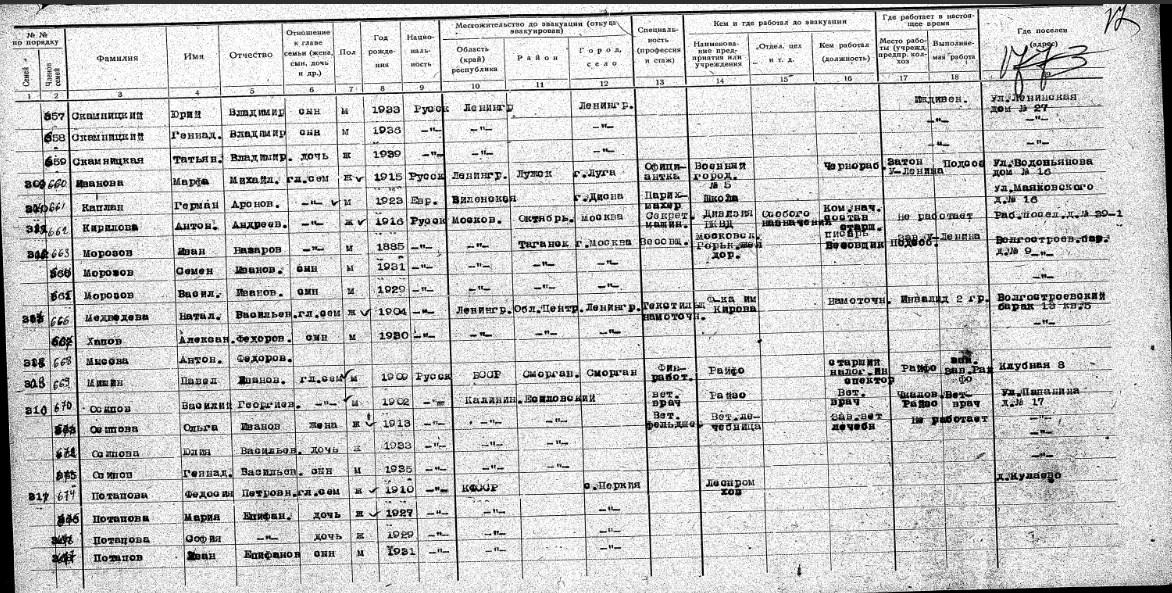 17
1773
№ № по порядку
Семей
Членов семей
Фамилия
Имя
Отчество
Отношение к главе семьи (жена, сын, дочь и др.)
Пол
Год рождения
Национальность
Местожительство до эвакуации (откуда эвакуирован)
Область (край) республика
Район
Город, село
Специальность (профессия и стаж)
Кем и где работал до эвакуации
Наименование предприятия или учреждения
Отдел, цех и т. д.
Кем работал (должность)
Где работает в настоящее время
Место работы (учрежд. предпр. колхоз
Выполняемая работа
Где поселен (адрес)
1 2 3 4 5 6 7 8 9 10 11 12 13 14 15 16 17 18
657 Скамницкий Юрий Владимир сын м 1933 Русск Ленингр Ленингр. Иждивен. Ул.Ленинская дом № 27
658 Скамницкий Геннад. Владимир сын м 1936 -"- -"- -"- -"- -"-
659 Скамницкая Татьян. Владимир. дочь ж 1939 -"- -"- -"- -"- -"-
309 660 Иванова Марфа Михайл. гл.сем ж 1915 Русск Ленингр. Лужск г.Луга Официантка Военный город. № 5 Чернораб Затон У-Ленина Подсоб Ул.Водопьянова дом № 16
661 Каплан Герман Аронов. -"- м 1923 Евр. Виленская г.Дисна Парикмахер Школа Ул.Маяковского д.№ 16
662 Кирилова Антон. Андреев. -"- ж 1916 Русск Москов. Октябрь. Москва Секрет. машин. Дивизия НКВД Особого назначения Ком.нач. состав старш. писарь не работает Раб.посел.д.№ 29-1
312 663 Морозов Иван Назаров -"- м 1885 -"- -"- Таганск г.Москва Весовщ. Московск Горьк.жел дор. Весовщик зав.У-Ленина Подсоб. Волгостроев.бар. д.№ 9
Морозов Семен Иванов. сын м 1931 -"- -"- -"- -"- -"-
Морозов Васил. Иванов. сын м 1929 -"- -"- -"- -"- -"-
666 Медведева Натал. Васильев. гл.сем ж 1904 -"- Ленингр. Обл.Центр. Ленингр. Текстильщ намоточн. Ф-ка им Кирова Намоточн. Инвалид 2 гр. Волгостроевский барак 13 кв.5
667 Хапов Алексан. Федоров. сын м 1930 -"- -"- -"- -"- -"-
668 Мысова Антон. Федоров.
315 669 Мишин Павел Иванов. гл.сем м 1909 Русск БССР Сморган. Сморган Финработ. Райфо старший налог.инспектор Райфо зав.Рай фо Клубная 8
316 670 Осипов Василий Георгиев. -"- м 1902 -"- Калинин. Есиповский вет. врач Райзо Вет. врач Райзо Вет-врач Ул.Папанина д.№ 17
Осипова Ольга Иванов жена ж 1913 -"- -"- -"- Вет. фельдшер Вет.лечебница зав.вет лечебн не работает -"-
672 Осипова Юлия Васильев. дочь ж 1933 -"- -"- -"- -"-
Осипов Геннад. Васильев. сын м 1935 -"- -"- -"- -"-
317 674 Потапова Федосия Петровн. гл.сем ж 1910 -"- КФССР Леспромхоз д.Куляево
Потапова Мария Епифан. дочь ж 1927 -"- -"- -"- -"-
Потапова София -"- дочь ж 1929 -"- -"- -"- -"-
Потапов Иван Епифанов сын м 1931 -"- -"- -"- -"-